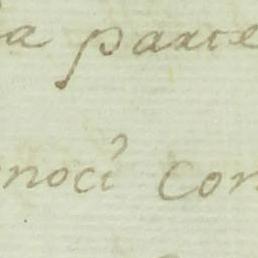 la parte
noci con